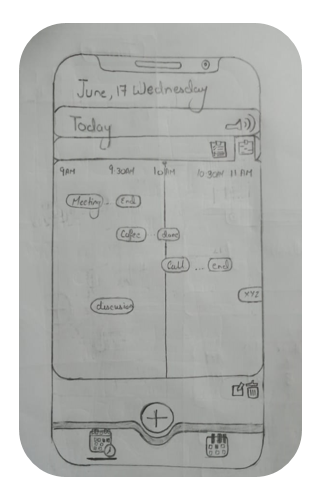 June, 17 Wednesday
Today
9AM 9:30AM 10AM 10:30AM 11AM
Meeting End
Coffee done
Call ... End
XYZ
discussion